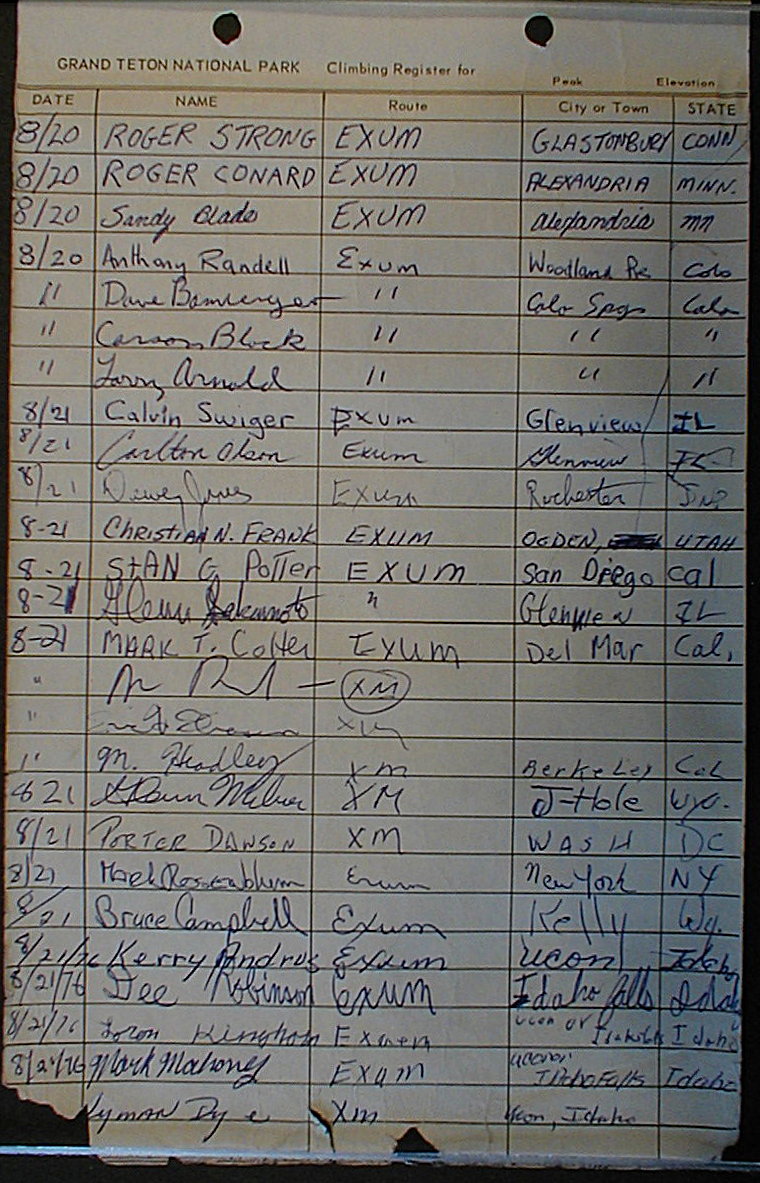 GRAND TETON NATIONAL PARK Climbing Register for Peak Elevation
DATE NAME Route City or Town STATE
8/20 ROGER STRONG EXUM GLASTONBURY CONN
8/20 ROGER CONARD EXUM ALEXANDRIA MINN.
8/20 Sandy Blade EXUM Alexandria mn
8/20 Anthony Randell Exum Woodland Colo
" Dave " Colo Spgs Colo
" Carson Block " " "
" Larry Arnold " " "
8/21 Calvin Swiger Exum Glenview IL
8/21 Carlton Olson Exum Glenview IL
8/21 Dewey Jones Exum Rochester
8-21 CHRISTIAN N. FRANK EXUM OGDEN, UTAH
8-21 STAN G Potter EXUM San Diego Cal
8-21 Glenn " Glenview IL
8-21 MARK T. Colter Exum Del Mar Cal.
" XM
" XM
" M. Headley XM Berkeley Cal
8 21 XM J-Hole Wyo.
8/21 PORTER DAWSON XM WASH DC
8/21 Mark Rosenblum Exum New York NY
8/21 Bruce Campbell Exum Kelly Wy.
8/21/76 Kerry Andrus Exum Ucon Idaho
8/21/76 Dee Robinson Exum Idaho Falls Idaho
8/21/76 Kingham Exum Ucon or Idaho
8/21/76 Mark Mahoney Exum Idaho Falls Idaho
Lyman Dye Xm Ucon, Idaho